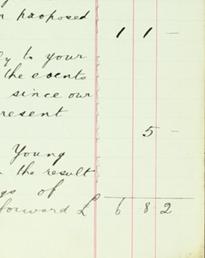 proposed 1 1 -
to your
the events
since our
present
5 -
Young
the result
of
forward £ 6 8 2